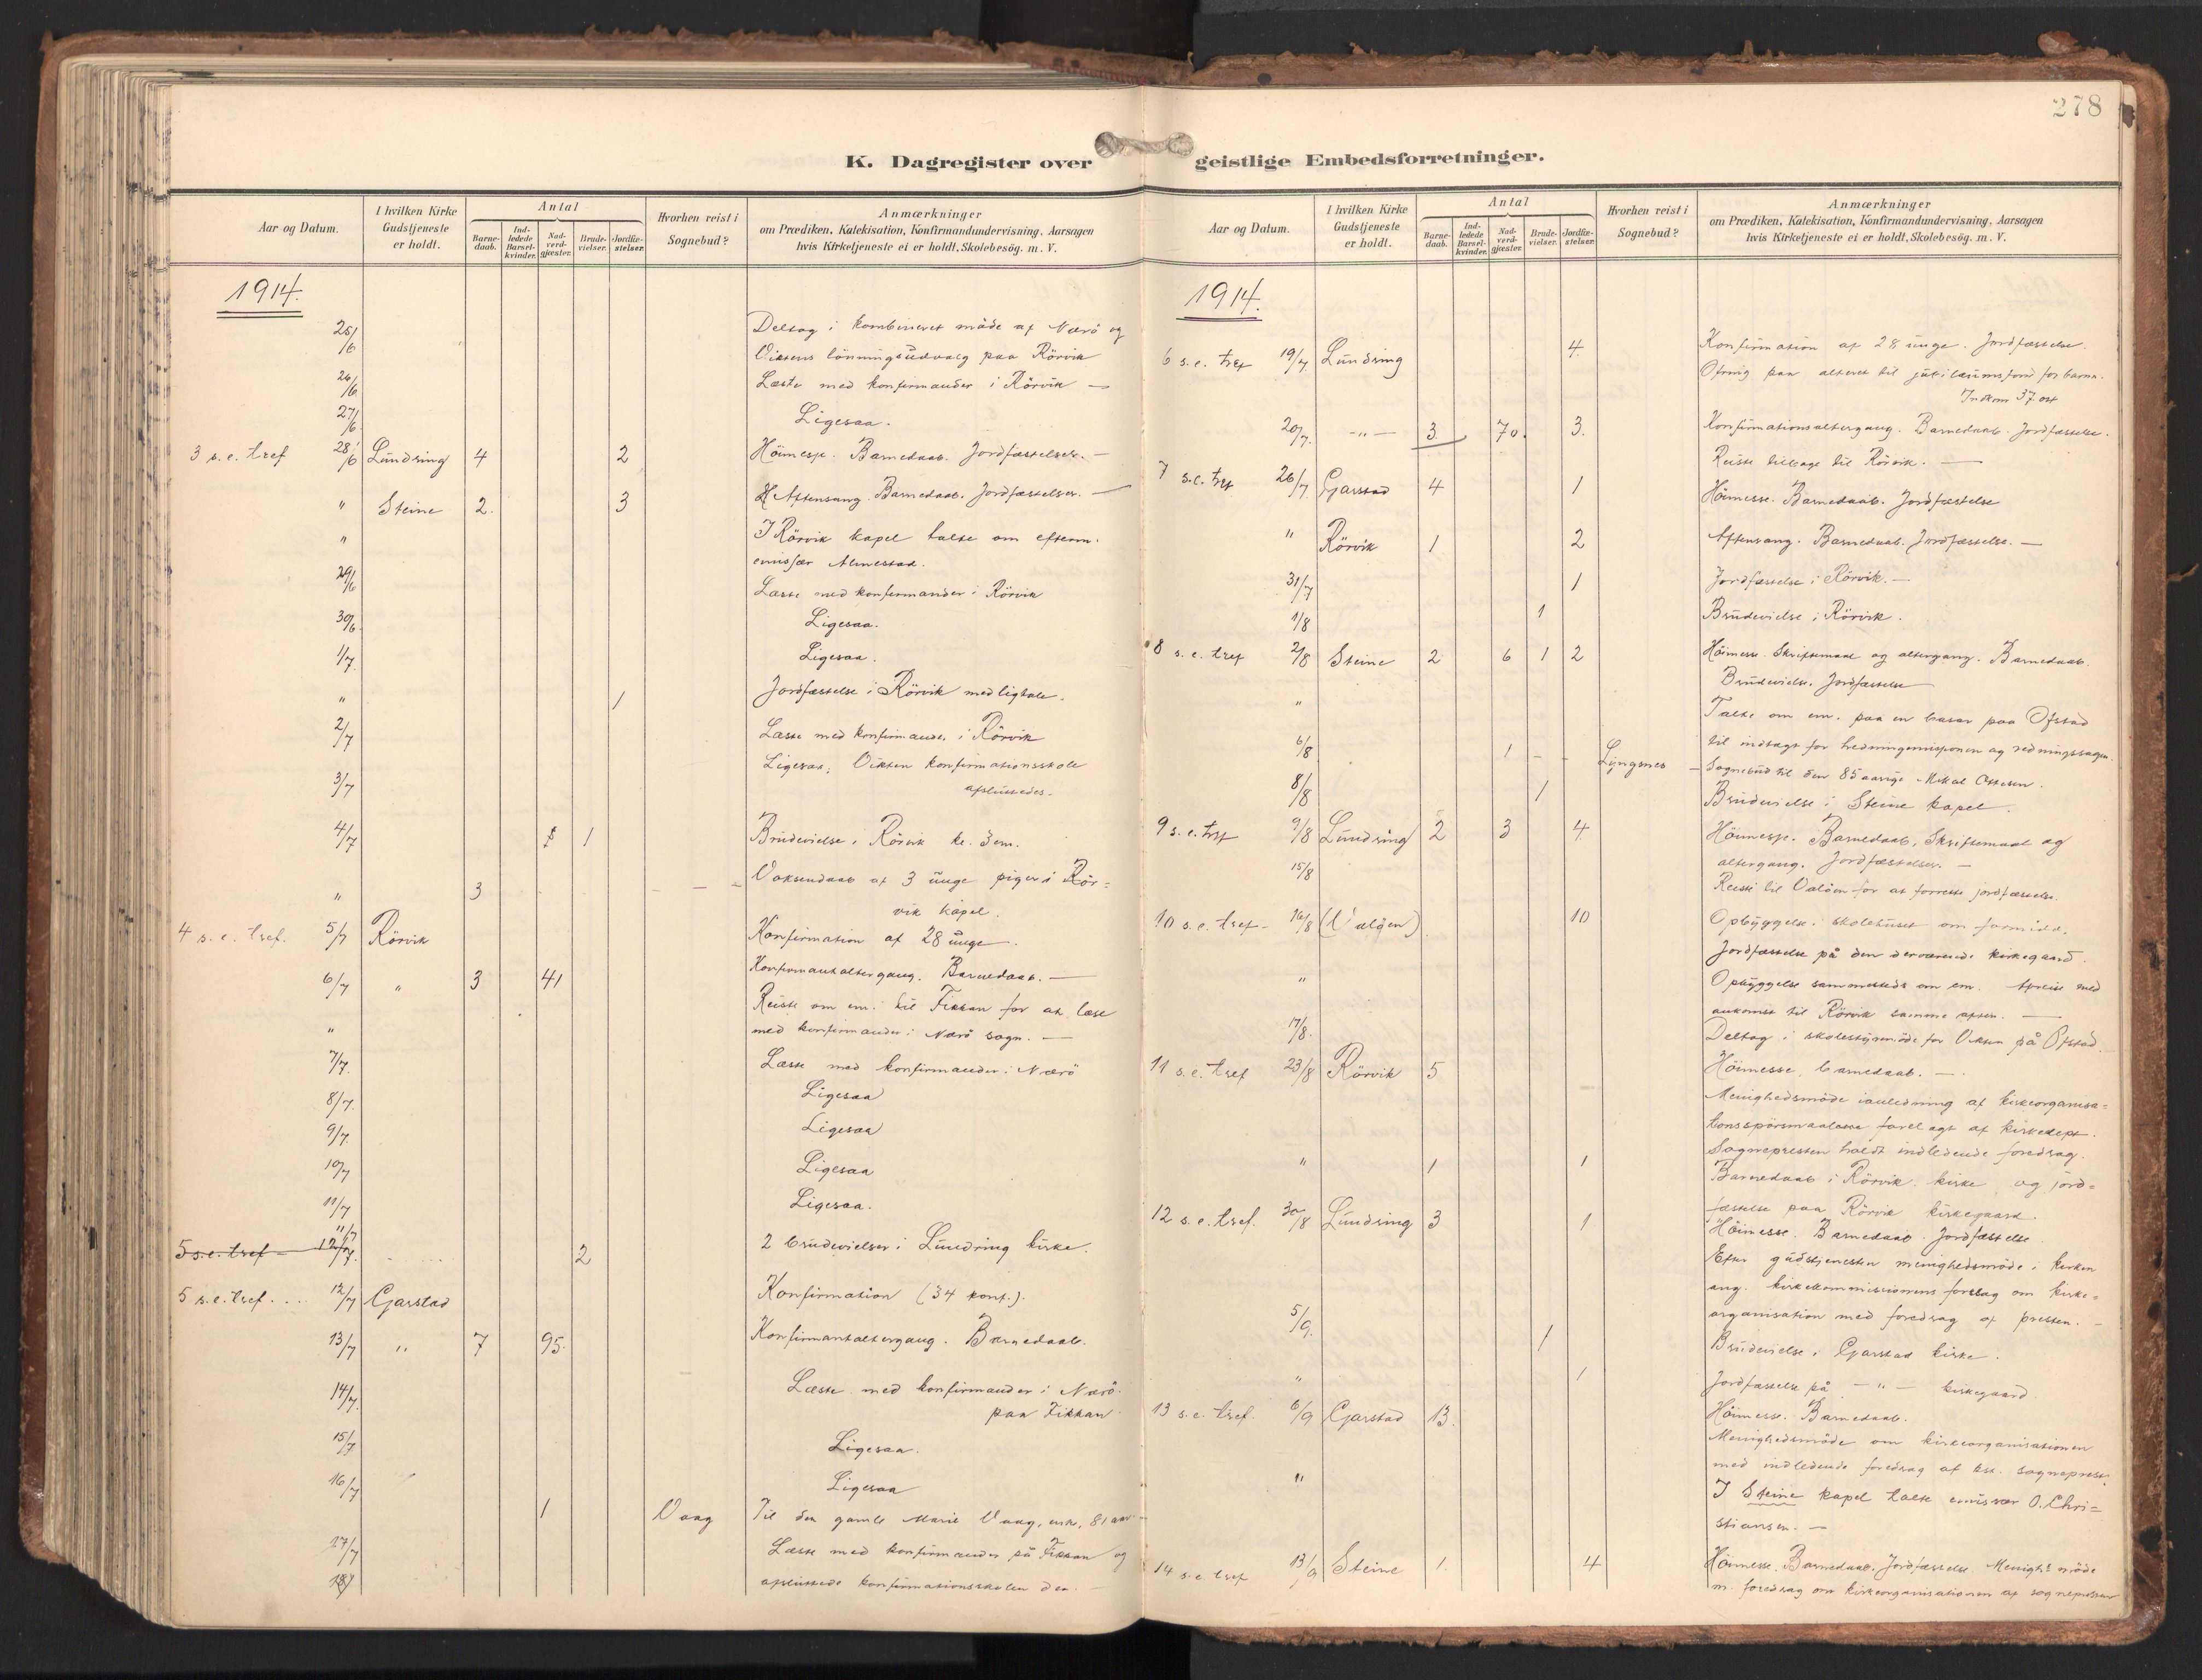 278
K. Dagregister over geistlige Embedsforretninger.
Aar og Datum.
I hvilken Kirke Gudstjeneste er holdt.
Antal
Barne-daab.
Ind-ledede Barsel-kvinder.
Nad-verd-gjæster.
Brude-vielser.
Jordfæ-stelser.
Hvorhen reist i Sognebud?
Anmærkninger
om Prædiken, Katekisation, Konfirmandundervisning, Aarsagen
hvis Kirketjeneste ei er holdt, Skolebesög. m. V.
1914.
25/6 Deltog i kombineret möde af Nærö og
Viktens lönningsudvalg paa Rörvik
26/6 Læste med konfirmander i Rörvik —
27/6 Ligesaa.
3 s. e. tref 28/6 Lundring 4 2 Höimesse. Barnedaab. Jordfæstelser. —
" Steine 2. 3 Aftensang. Barnedaab. Jordfæstelser. —
" I Rörvik kapel talte om efterm.
emissær Almestad.
29/6 Læste med konfirmander i Rörvik
30/6 Ligesaa.
1/7 Ligesaa.
" 1 Jordfæstelse i Rörvik med ligtale.
2/7 Læste med konfirmander i Rörvik
3/7 Ligesaa; Vikten konfirmationsskole
afsluttedes.
4/7 1 Brudevielse i Rörvik kl. 3 em.
" 3 Voksendaab af 3 unge piger i Rör=
vik kapel.
4 s. e. tref. 5/7 Rörvik Konfirmation af 28 unge.
6/7 " 3 41 Konfirmantaltergang. Barnedaab. —
" Reiste om em. til Fikkan for at læse
med konfirmander i Nærö sogn. —
7/7. Læste med konfirmander i Nærö
8/7. Ligesaa
9/7. Ligesaa
10/7 Ligesaa
11/7 Ligesaa.
5 s. e. tref — 12/7. 11/7 2 2 brudevielser i Lundring kirke.
5 s. e. tref. ... 12/7 Garstad Konfirmation (34 konf.).
13/7 " 7 95. Konfirmantaltergang. Barnedaab.
14/7. Læste med konfirmander i Nærö
paa Fikkan
15/7 Ligesaa.
16/7 Ligesaa
1 Vaag Til den gamle Marie Vaag, enke, 81 aar —
17/7 Læste med konfirmander på Fikkan og
afsluttede konfirmationsskolen der. —
Aar og Datum.
I hvilken Kirke Gudstjeneste er holdt.
Antal
Barne-daab.
Ind-ledede Barsel-kvinder.
Nad-verd-gjæster.
Brude-vielser.
Jordfæ-stelser.
Hvorhen reist i Sognebud?
Anmærkninger
om Prædiken, Katekisation, Konfirmandundervisning, Aarsagen
hvis Kirketjeneste ei er holdt, Skolebesög. m. V.
1914.
6 s. e. tref 19/7 Lundring 4. Konfirmation af 28 unge. Jordfæstelse.
Ofring paa alteret til jubilæumsfond for barn.
Indkom 37.
20/7. — " — 3. 70. 3. Konfirmationsaltergang. Barnedaab. Jordfæstelse.
Reiste tilbage til Rörvik. —
7 s. e. tref 26/7 Garstad 4 1 Höimesse. Barnedaab. Jordfæstelse
" Rörvik 1 2 Aftensang. Barnedaab. Jordfæstelse. —
31/7 1 Jordfæstelse i Rörvik. —
1/8 1 Brudevielse i Rörvik.
8 s. e. tref 2/8 Steine 2 6 1 2 Höimesse. Skriftemaal og altergang. Barnedaab.
Brudevielse. Jordfæstelse
" Talte om em. paa en basar paa Ofstad
til indtægt for hedningemissionen og redningssagen.
6/8 1 Lyngsnes — Sognebud til den 85 aarige Mikal Ottesen.
8/8 1 Brudevielse i Steine kapel.
9 s. e. tref 9/8 Lundring 2 3 4 Höimesse. Barnedaab, Skriftemaal og
altergang. Jordfæstelser. —
15/8 Reiste til Valöen for at forrette jordfæstelse.
10 s. e. tref — 16/8 (Valöen) 10 Opbyggelse i skolehuset om formidd.
Jordfæstelse på den derværende kirkegaard.
" Opbyggelse sammesteds om em. Afreise med
ankomst til Rörvik samme aften. —
17/8. Deltog i skolestyremöde for Vikten på Ofstad.
11 s. e. tref 23/8 Rörvik 5 Höimesse, barnedaab. —
Menighedsmöde i anledning af kirkeorganisa=
tionsspörsmaalene forelagt af kirkedept.
Sognepresten holdt indledende foredrag.
" 1 1 Barnedaab i Rörvik kirke og jord=
fæstelse paa Rörvik kirkegaard.
12 s. e. tref. 30/8 Lundring 3 1 Höimesse. Barnedaab. Jordfæstelse
Efter gudstjenesten menighedsmöde i kirken
ang. kirkekommissionens forslag om kirke=
organisation med foredrag af presten. —
5/9. 1 Brudevielse i Garstad kirke.
" 1 Jordfæstelse på — " — kirkegaard
13 s. e. tref. 6/9 Garstad 13. Höimesse. Barnedaab.
Menighedsmöde om kirkeorganisationen
med indledende foredrag af sognepresten.
" I Steine kapel talte emissær O. Chri=
stiansen. —
14 s. e. tref 13/9 Steine 1. 4 Höimesse. Barnedaab. Jordfæstelse. Menigh. möde
m. foredrag om kirkeorganisationen af sognepresten